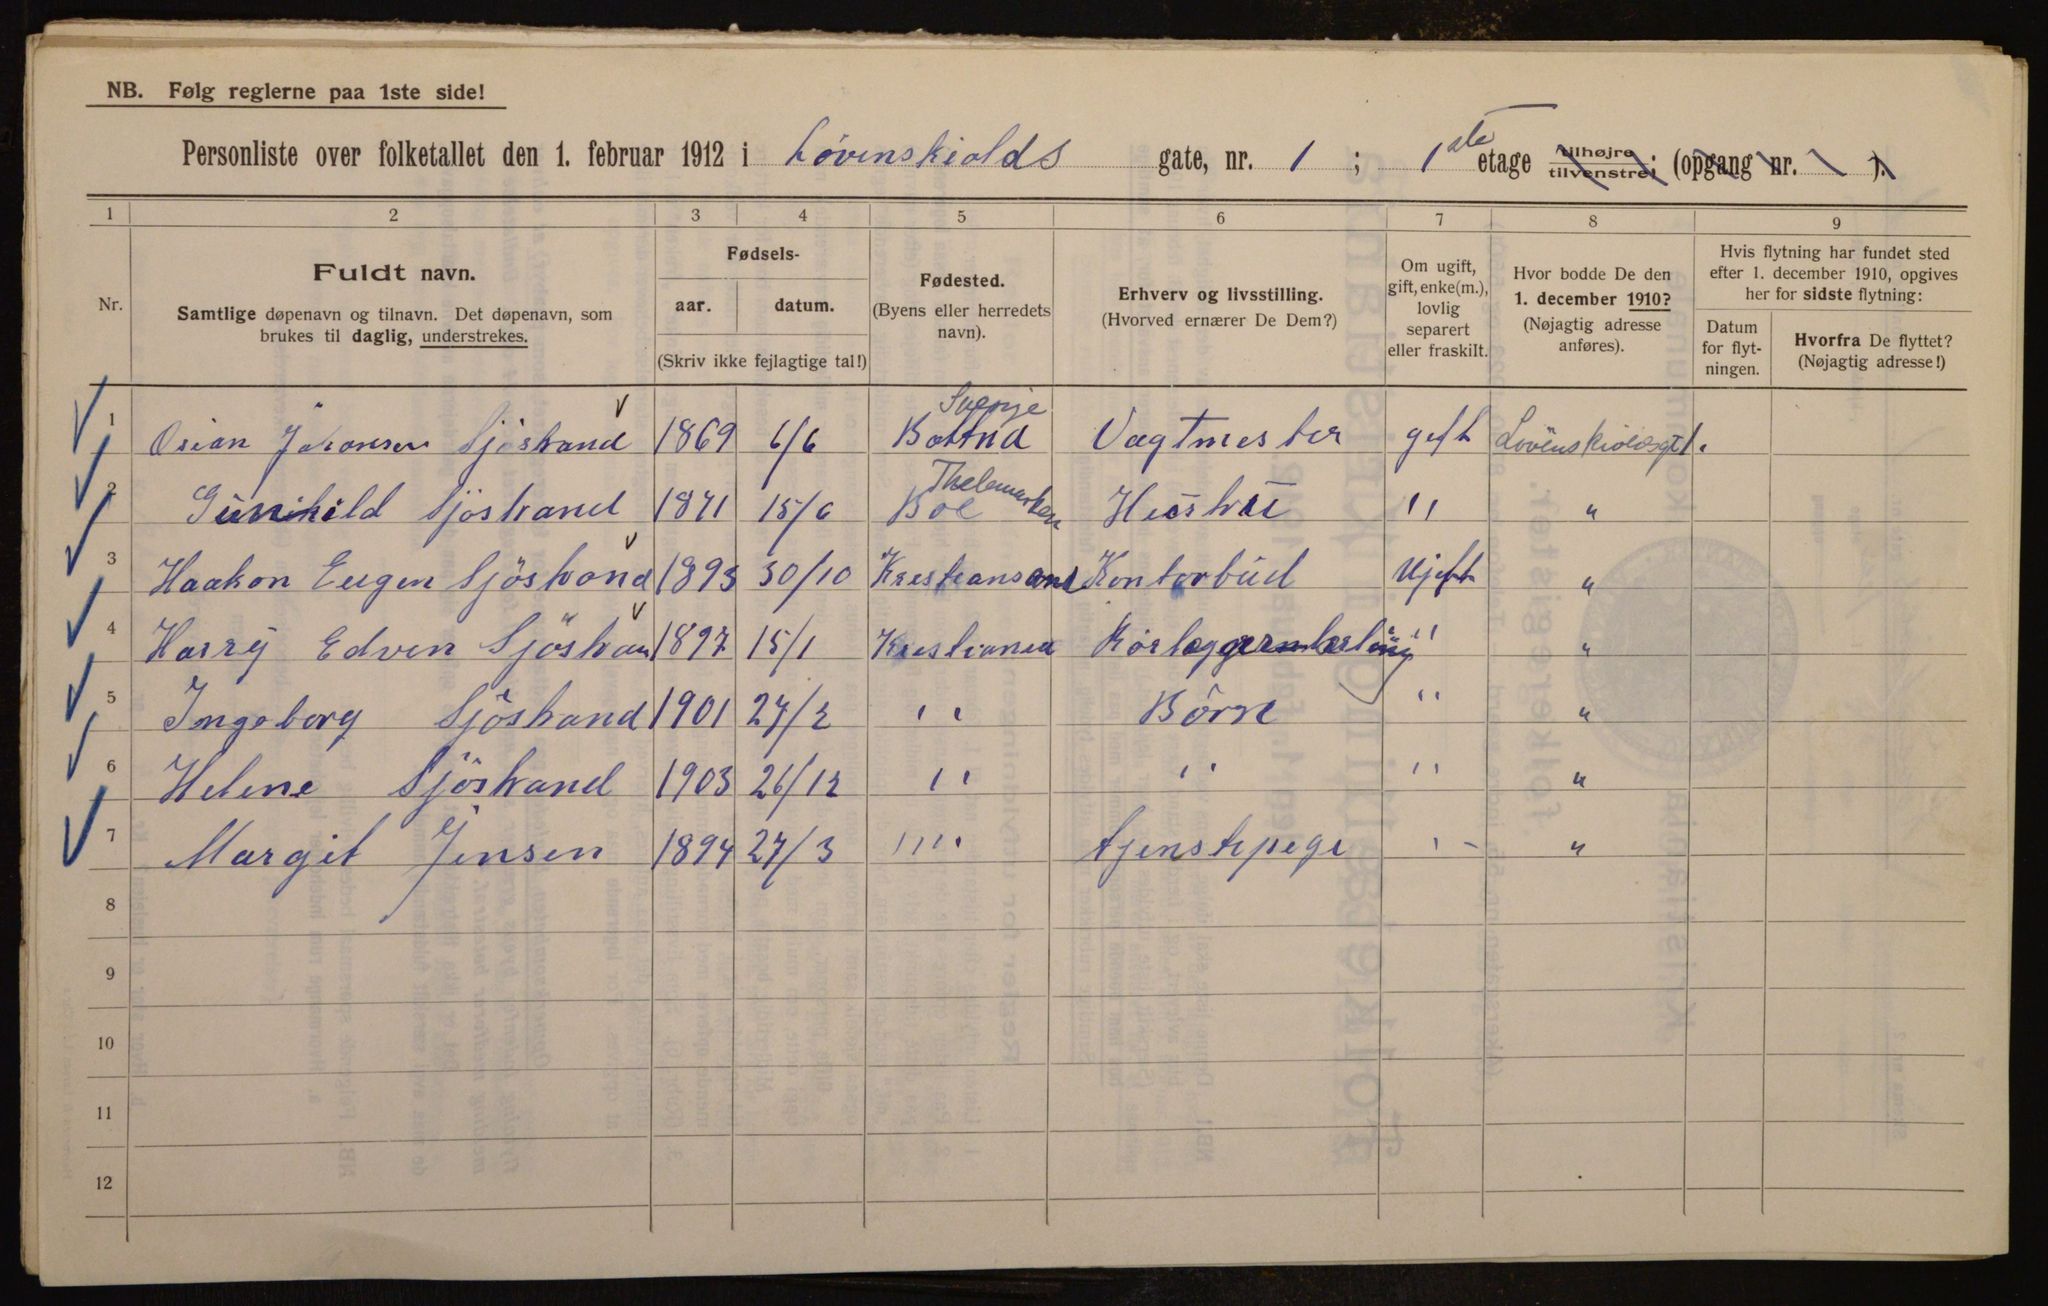 NB. Følg reglerne paa 1ste side!
Personliste over folketallet den 1. februar 1912 i Løvenskiolds gate, nr. 1 ; 1ste etage tilhøjre tilvenstre; (opgang nr. ).
1 2 3 4 5 6 7 8 9
Nr.
Fuldt navn.
Samtlige døpenavn og tilnavn. Det døpenavn, som
brukes til daglig, understrekes.
Fødsels-
aar. datum.
(Skriv ikke fejlagtige tal!)
Fødested.
(Byens eller herredets
navn).
Erhverv og livsstilling.
(Hvorved ernærer De Dem?)
Om ugift,
gift, enke(m.),
lovlig
separert
eller fraskilt.
Hvor bodde De den
1. december 1910?
(Nøjagtig adresse
anføres).
Hvis flytning har fundet sted
efter 1. december 1910, opgives
her for sidste flytning:
Datum
for flyt-
ningen.
Hvorfra De flyttet?
(Nøjagtig adresse!)
Sverje
1 Johansen Sjöstrand 1869 6/6 Vagtmester gift
Thelemarken
2 Gunhild Sjöstrand 1871 15/6 Boe Hustru " "
3 Haakon Eugen Sjöstrand 1893 30/10 Kristiansand Kontorbud Ugift "
4 Harry Edvin 1897 15/1 Kristiania Rörlæggerlærling " "
5 Ingeborg Sjöstrand 1901 27/2 " Börn " "
6 Helene Sjöstrand 1903 26/12 " " " "
7 Margit Jensen 1894 27/3 " " "
8
9
10
11
12